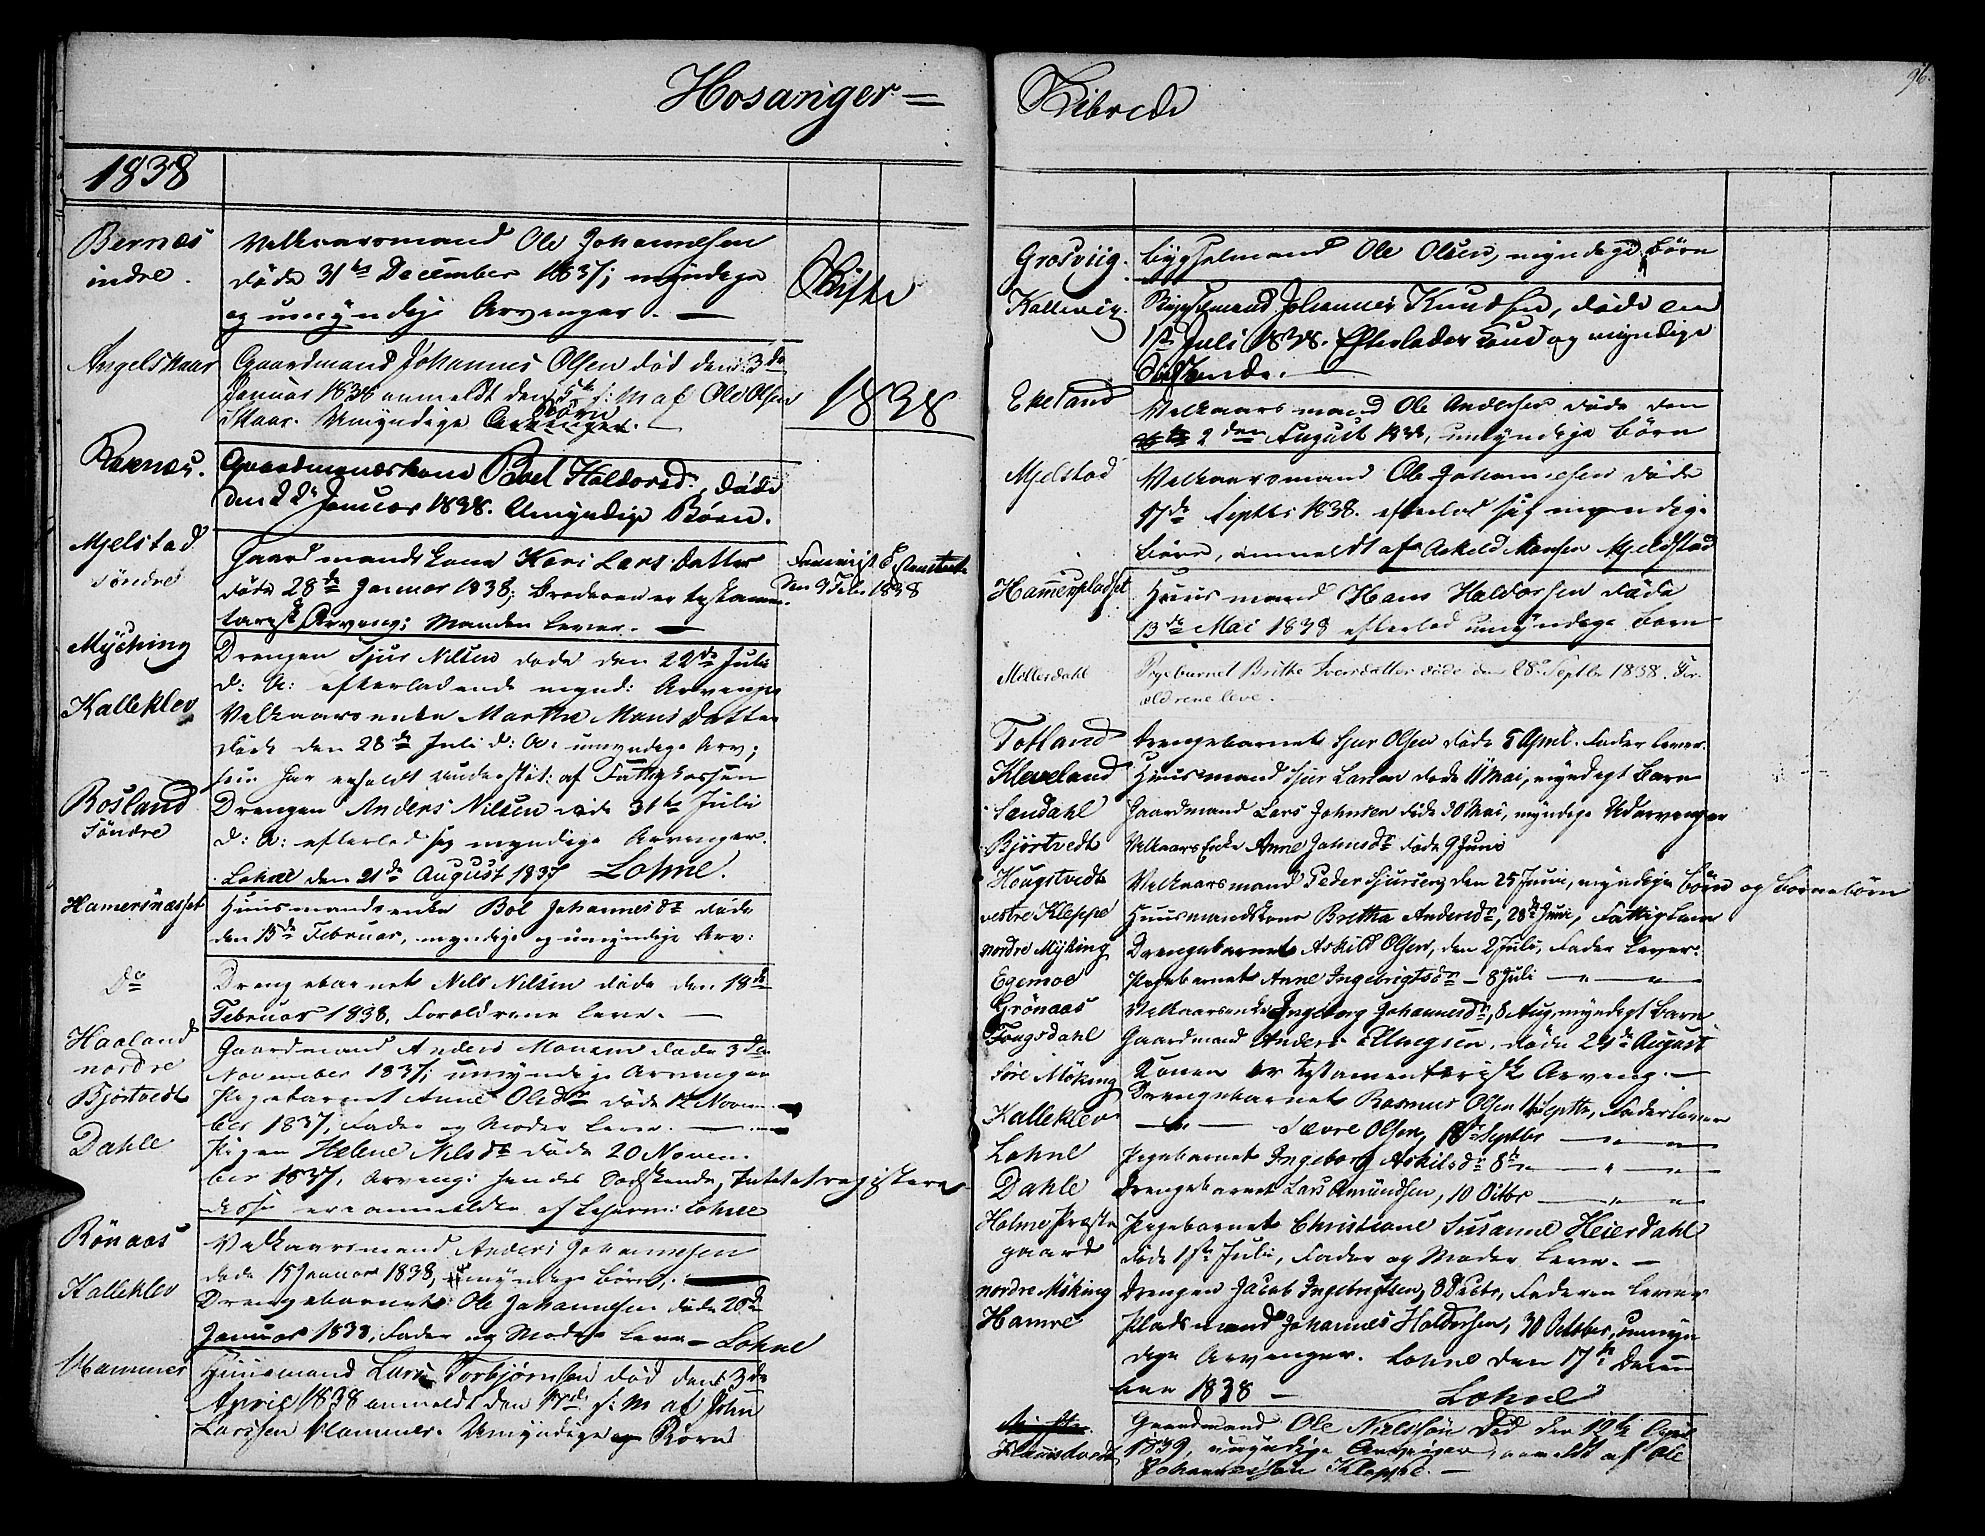 Hosanger =
1838
Bernæs
indre.
Velkaarsmand Ole Johannesen
døde 31te December 1837; myndige
og umyndige Arvenger. —
Skifte
1838
Angelskaar
Gaardmand Johannes Olsen død den 3de
Januar 1838 anmeldt den 5te s: M af Ole Olsen
Skaar. Umyndige Børn
Reknæs.
Gaardmandskone Boel Haldorsd:, døde
den 22de Januar 1838. Umyndige Børn.
Mjelstad
søndre
Gaardmandskone Kari Lars datter
døde 28de Januar 1838; Broderen er testamen-
tarisk Arving; Manden lever. —
den 9 Febr. 1838
Myching
Drengen Sjur Nilsen døde den 22de Juli
d: A: efterladende mynd: Arvenger
Kalleklev
Velkaarsenke Marthe Mons datter
døde den 28de Juli d: A: umyndige Arv;
hun har erholdt understøt: af Fattigkassen
Rosland
søndre
Drengen Anders Nilsen døde 31te Juli
d: A: efterlod sig myndige Arvenger.
Lohne den 21de August 1837 Lohne.
Hamersnæsset
Huusmandsenke Bol Johannesdr døde
den 15de Februar, myndige og umyndige Arv:
Do
Drengebarnet Nils Nilsen døde den 18de
Februar 1838, Forældrene leve. —
Haaland
nordre
Gaardmand Anders Monsen døde 3den
November 1837; umyndige Arvenger
Bjørtvedt
Pigebarnet Anne Olsdr døde 12 Novem-
ber 1837, Fader og Moder leve. —
Dahle
Pigen Helene Nilsdr døde 20 Novem-
ber 1837, Arving: hendes Sødskende, Intet at registere
disse ere anmeldte af Lensm: Lohne
Rönaas
Velkaarsmand Anders Johannesen
døde 15 Januar 1838, myndige børn. —
Kalleklev
Drengebarnet Ole Johannesen døde 20de
Januar 1838, Fader og Moder leve — Lohne
Hammer
Huusmand Lars Torbjørnsen død den 3de
April 1838 anmeldt den 17de s: M af John
Larssen Hammer. Umyndige Børn
Skibrede
96.
Grosviig.
bygselmand Ole Olsen, myndige børn
Kallevig.
Bygselmand Johannes Knudsen, døde den
1ste Juli 1838. Efterlader Enke og myndige
Sødskende. —
Ekeland
Velkaarsmand Ole Andersen døde den
2den August 1838, umyndige børn
Mjelstad
Velkaarsmand Ole Johannesen døde
17de Septbr 1838. efterlod sig myndige
børn, anmeldt af Askeld Monsen Mjelstad
Hamerspladset
Huusmand Hans Haldorsen døde
13de Mai 1838 efterlod umyndige børn
Möllerdahl
Pigebarnet Brithe Iversdatter døde den 28de Septbr 1838. For-
ældrene leve.
Totland
Drengebarnet Sjur Olsen døde 5 April. Fader lever.
Kleveland
Huusmand Sjur Larsen døde 11 Mai, myndigt barn
Sandahl
Gaardmand Lars Johnsen døde 30 Mai, myndige Udarvenger
Bjørtvedt
Velkaars Enke Anne Johnsdr døde 9 Juni
Hougstvedt
Velkaarsmand Peder Sjursen den 25 Juni, myndige børn og børnebörn
vestre Kleppe
Huusmandskone Britha Andersdr, 28de Juni, Fattiglem
nordre Myking
Drengebarnet Askild Olsen, den 2 Juli, Fader lever.
Egemoe
Pigebarnet Anne Ingebrigtsdr — 8 Juli — " — " —
Grönaas
Velkaarsenke Ingeborg Johannesdr, 8 Aug, myndigt barn
Fougsdahl
Gaardmand Anders Ellingsen, døde 24de August
Konen er testamentarisk Arving. —
söre Möking
Drengebarnet Rasmus Olsen 11 Septbr, Fader lever
Kalleklev
— " — Sævre Olsen, 18de Septbr — " — " —
Lohne
Pigebarnet Ingeborg Askilsdr 8de — " — " —
Dahle
Drengebarnet Lars Amundsen, 10 Octbr — " — " —
Holme Præste
gaard
Pigebarnet Christiane Susanne Heierdahl
døde 1ste Juli, Fader og Moder leve. —
nordre Möking
Drengen Jacob Ingebrigtsen, 8 Octbr, Faderen lever
Hamre
Pladsmand Johannes Haldorsen, 30 October, umyn
dige Arvenger. Lohne den 17de Decem
ber 1838 —
Lohne
Gaardmand Ole Nielssøn død den 12te April
1839, myndige Arvinger, anmeldt af Ole
Johannessøn Kleppe. —